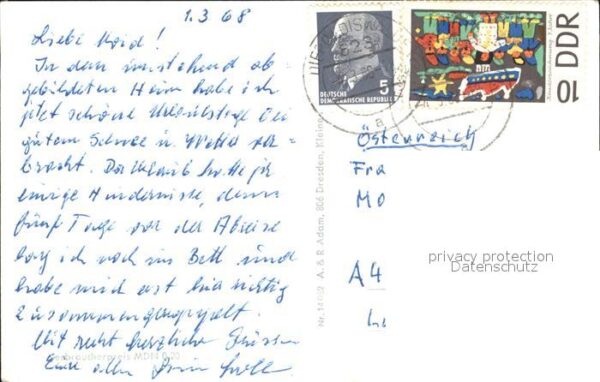 1.3.68
Liebe Moid!
In dem umstehend ab-
gebildeten Heim habe ich
jetzt schöne Urlaubstage bei
gutem Schnee u. Wetter ver-
bracht. Der Urlaub hatte ja
einige Hindernisse, denn
fünf Tage vor der Abreise
lag ich noch im Bett und
habe mich erst hier richtig
zusammengerappelt.
Mit recht herzlichen Grüssen
Euch allen
Verbraucherpreis MDN 0,20
Nr. 14/92 A. & R. Adam, 806 Dresden
5
DEUTSCHE
DEMOKRATISCHE REPUBLIK
DDR
10
a
Österreich
Fra
Mo
A4
privacy protection
Datenschutz